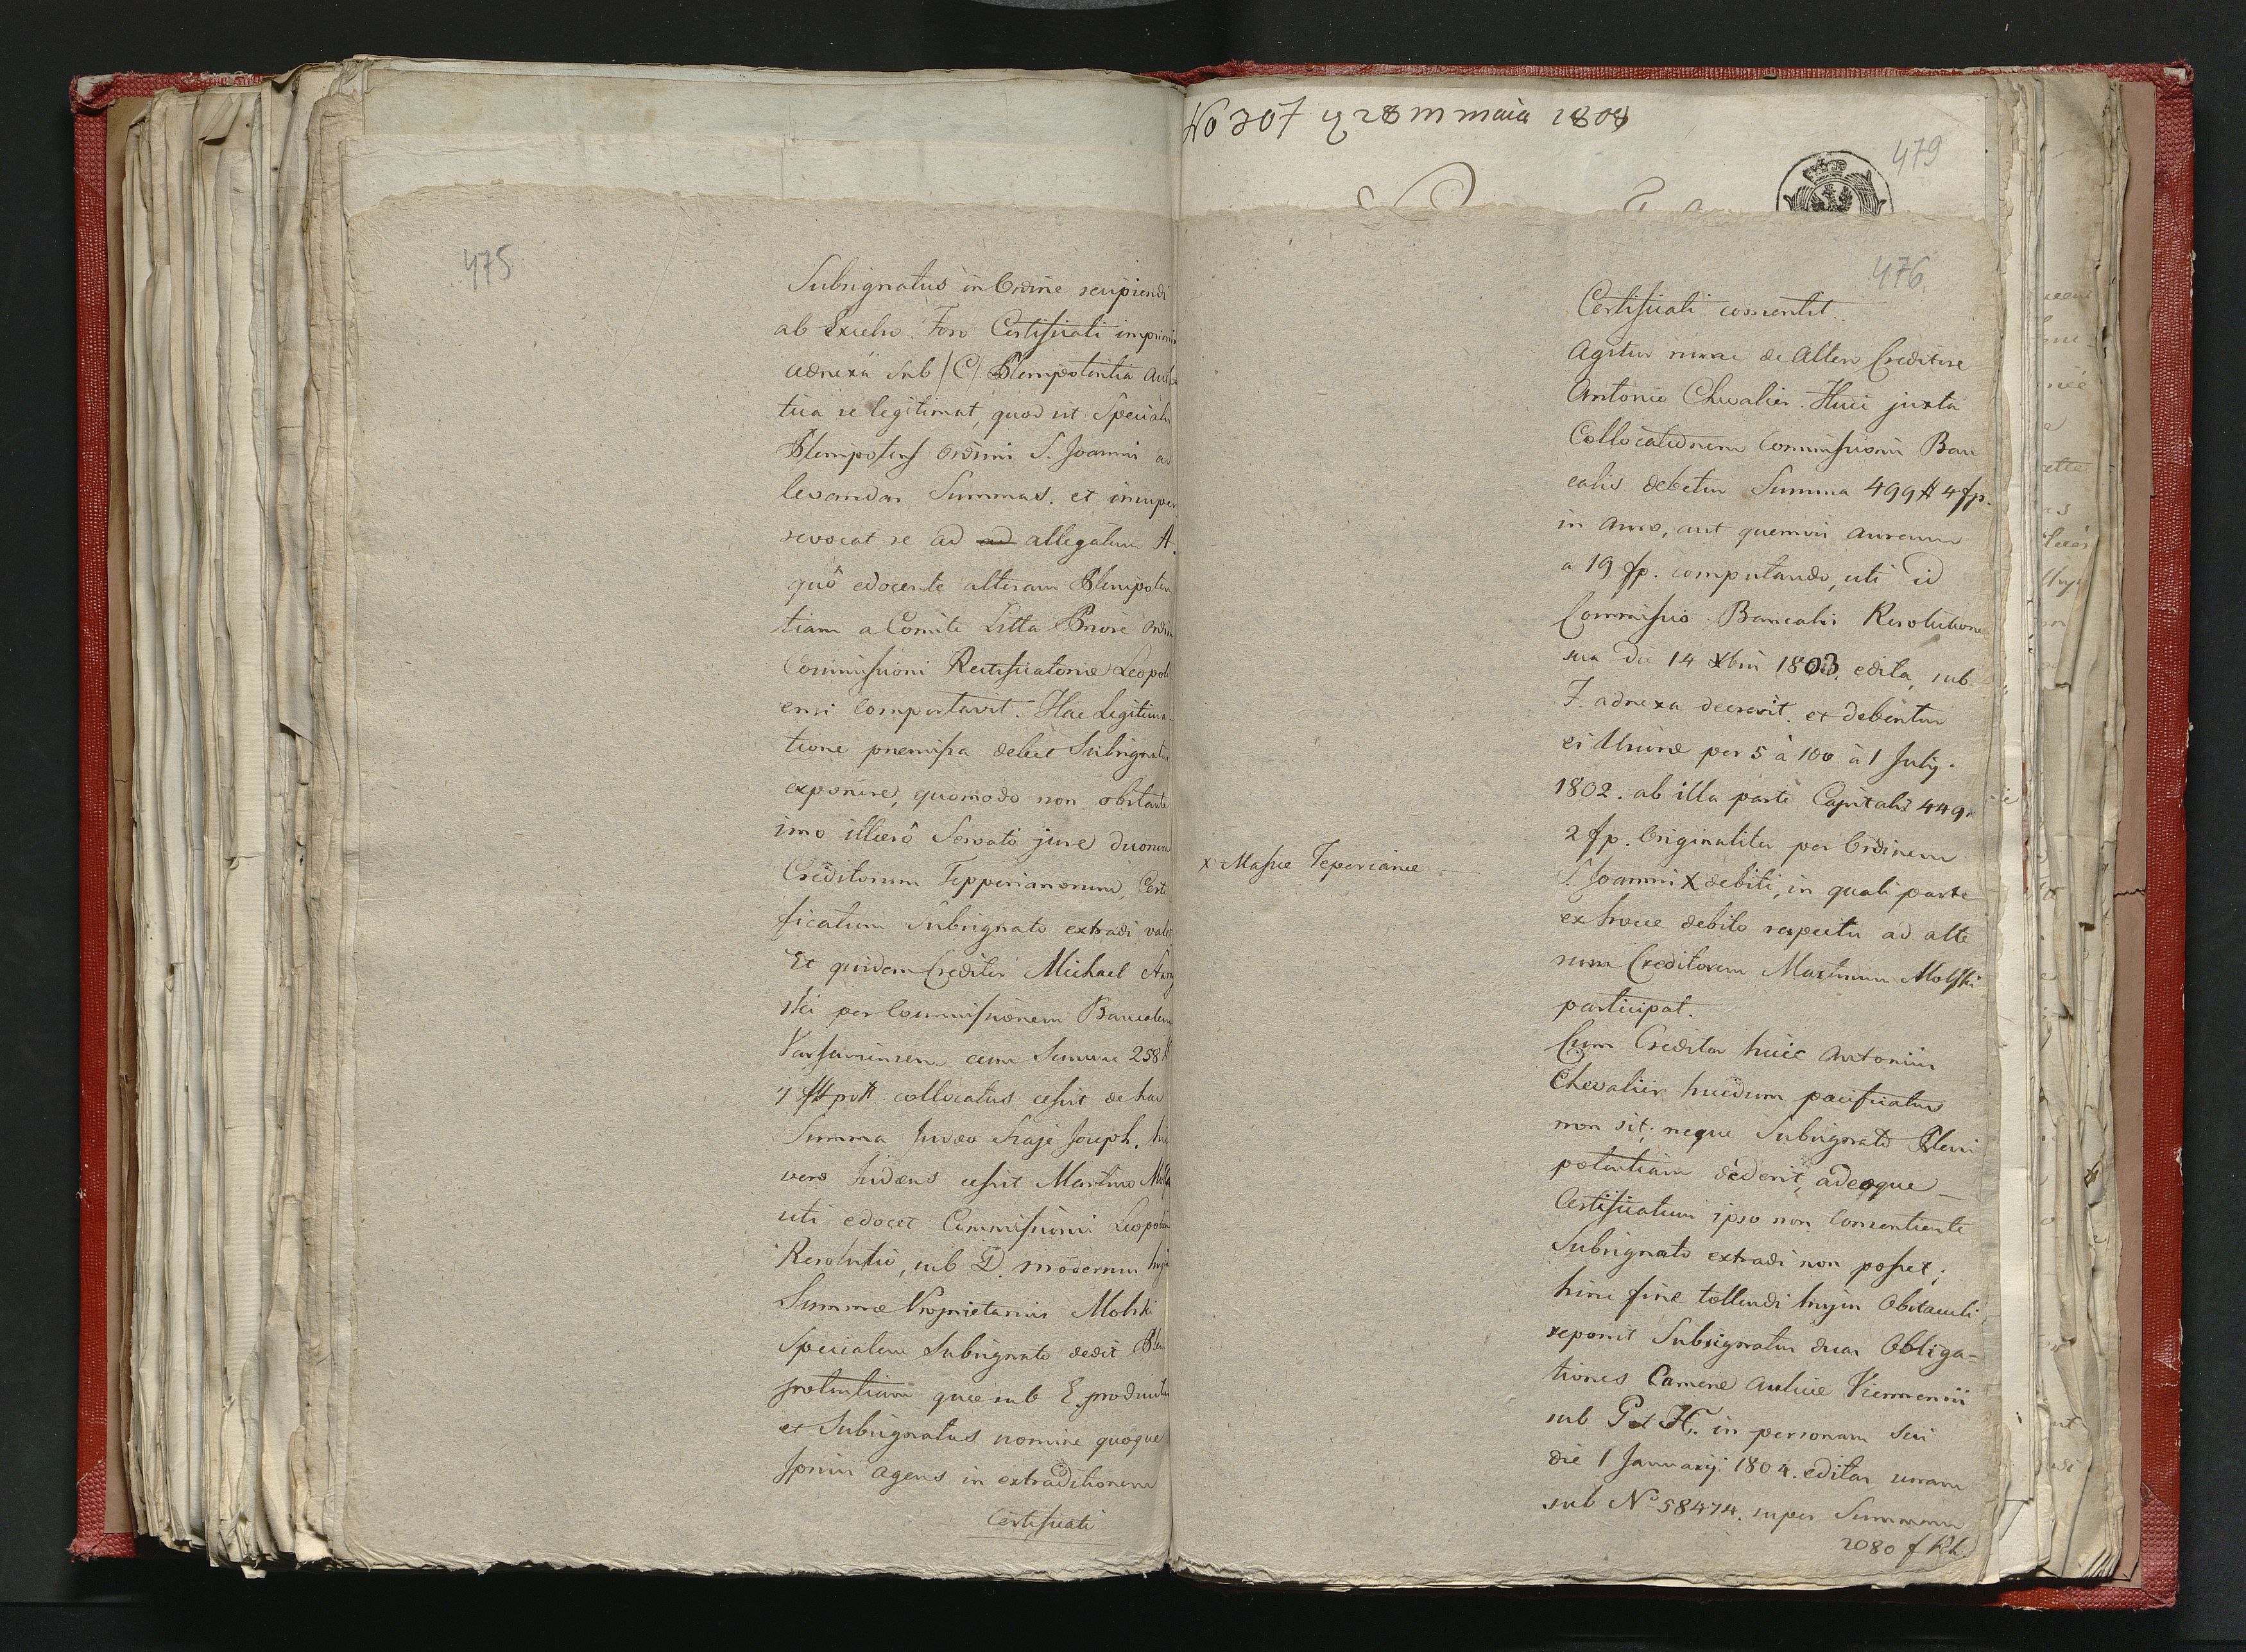 475
Subsignatus in Ordine recipiendi
ab Excelso Foro Certificati imprimis
adnexa sub /C/ Plenipotentia
tica se legitimat, quod sit Specialis
Plenipotens Ordinis S. Joannis ad
levandas Summas. et insuper
revocat se ad ad allegatum A.
quo edocente alteram Plenipoten
tiam a Comite Litta Priore Ordin
Commissioni Rectificatoriæ Leopoli
ensi comportavit. Hac Legitima-
tione præmissa debet Subsignatus
exponere, quomodo non obstante
imo illæso Servato jure duorum
Creditorum Tepperianorum, Certi
ficatum Subsignato extradi valet
Et quidem Creditor Michael
ski per Commissionem Bancalem
Varsaviensem cum Summa 258 #
collocatus cessit de hac
Summa Judæo Joseph, hic
vero Judæus cessit Martino Molski
uti edocet Commissionis Leopolien
Resolutio, sub D. modernus hujus
Summæ Proprietarius Molski
Specialem Subsignato dedit Pleni
potentiam quæ sub E. producitur
et Subsignatus nomine quoque
Ipsius agens in extraditionem
Certificati
No 307 28 m maia 1808
479
476.
Certificati consentit.
Agitur nunc de Altero Creditore
Antonio Chevalier. Huic juxta
Collocationem Commissionis Ban
calis debetur Summa 499 # 4 fp.
in Auro, aut quemvis Aureum
a 19 fp. computando, uti id
Commissio Bancalis Resolutione
sua die 14 Xbris 1803. edita, sub
F. adnexa decrevit. et debentur
ei Usuræ per 5 à 100 à 1 July.
1802. ab illa parte Capitalis 449 #
2 fp. Originaliter per Ordinem
S. Joannis X debiti, in quali parte
x Massæ Teperianæ
ex hocce debito respectu ad alte
rum Creditorem Martinum Molski
participat.
Cum Creditor huic Antonius
Chevalier hucdum pacificatus
non sit, neque Subsignato Pleni
potentiam dederit, adeoque
Certificatum ipso non Consentiente
Subsignato extradi non posset;
hinc fine tollendi hujus Obstaculi,
reponit Subsignatus duas Obliga=
tiones Cameræ Aulicæ Viennensis
sub G et H. in personam Sui
die 1 Januarij 1804. editas unam
sub No 58474. super Summam
2080 f Rh.